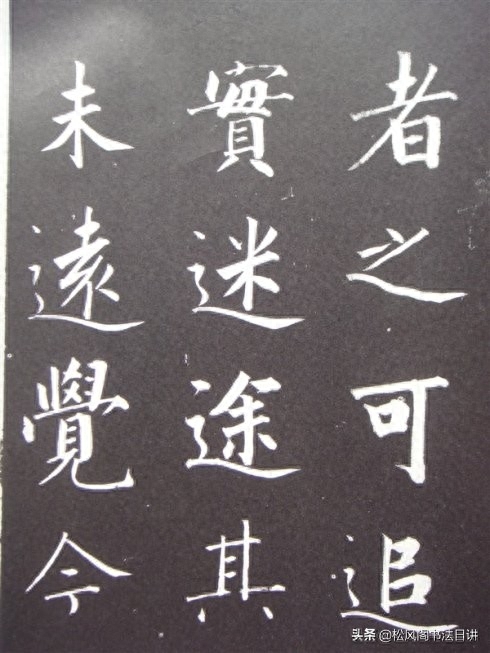 者之可追
實迷途其
未遠覺今
头条 @松风阁书法目讲